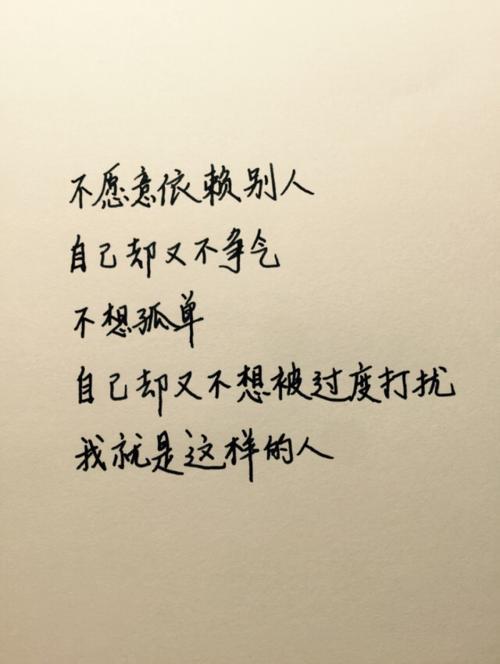 不愿意依赖别人
自己却又不争气
不想孤单
自己却又不想被过度打扰
我就是这样的人